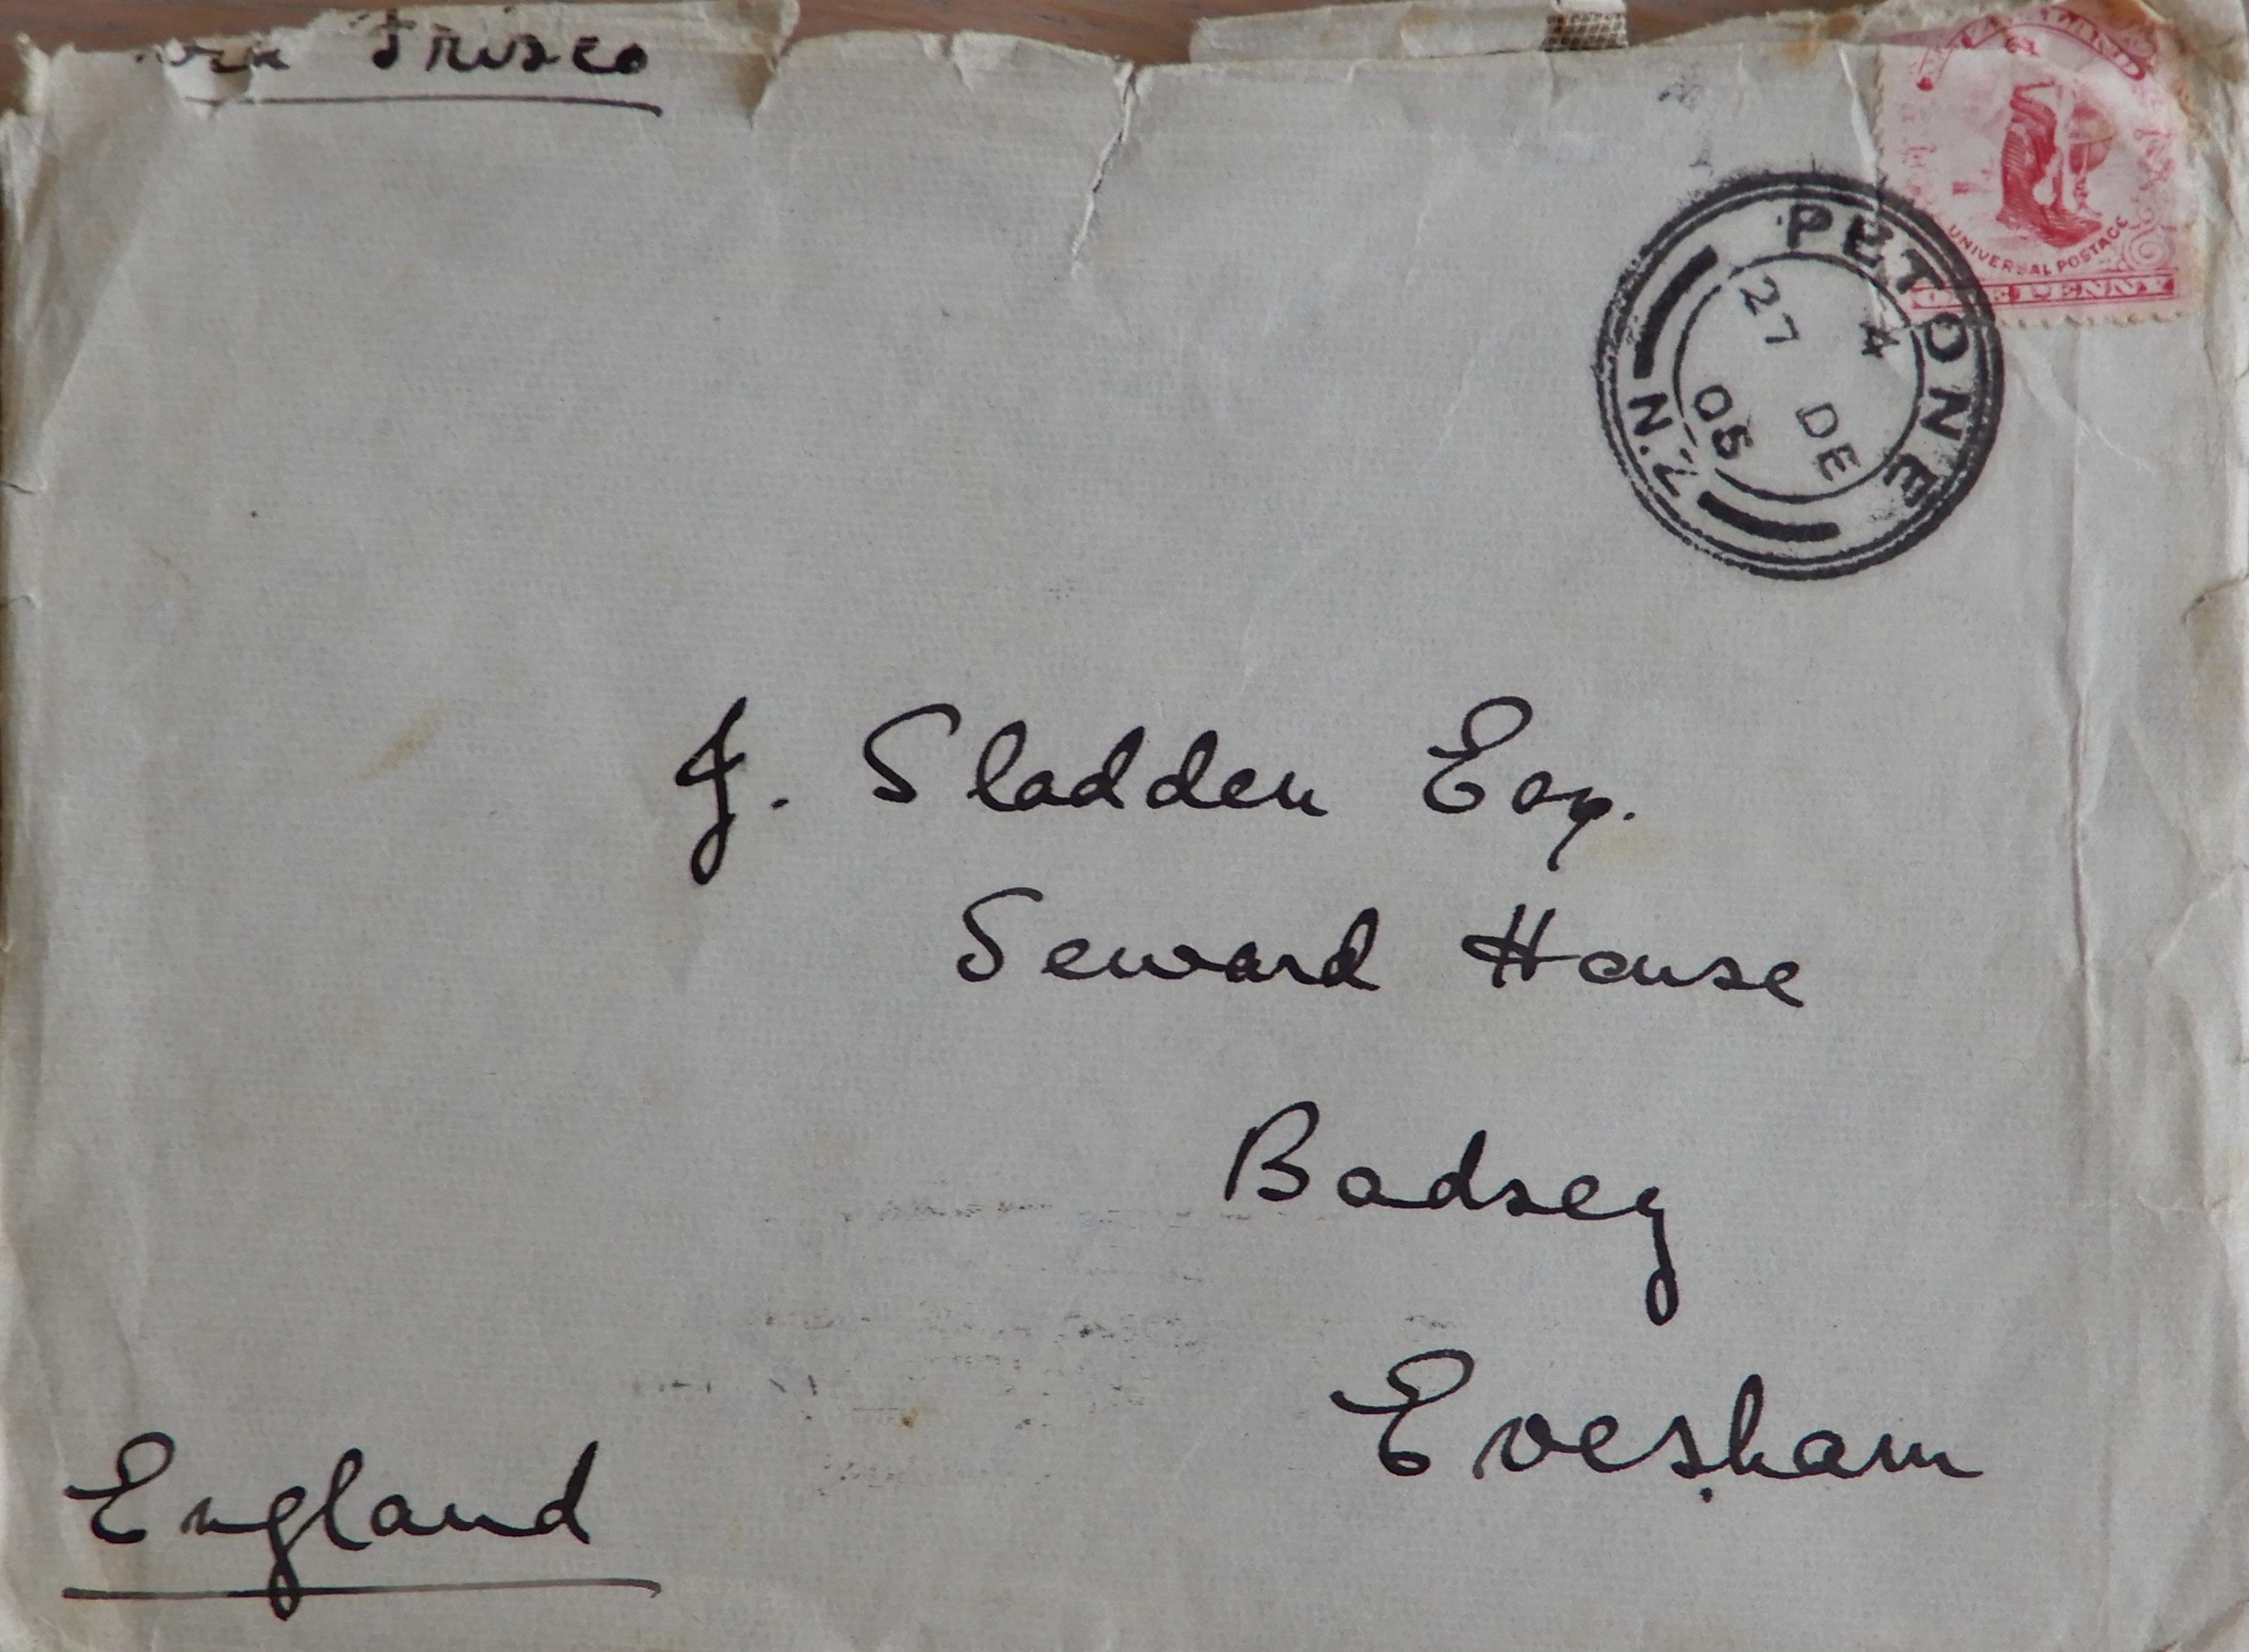 via Frisco
NEW ZEALAND
UNIVERSAL POSTAGE
ONE PENNY
PETONE
4
27 DE
05
N.Z.
J. Sladden Esq.
Seward House
Badsey
Evesham
England